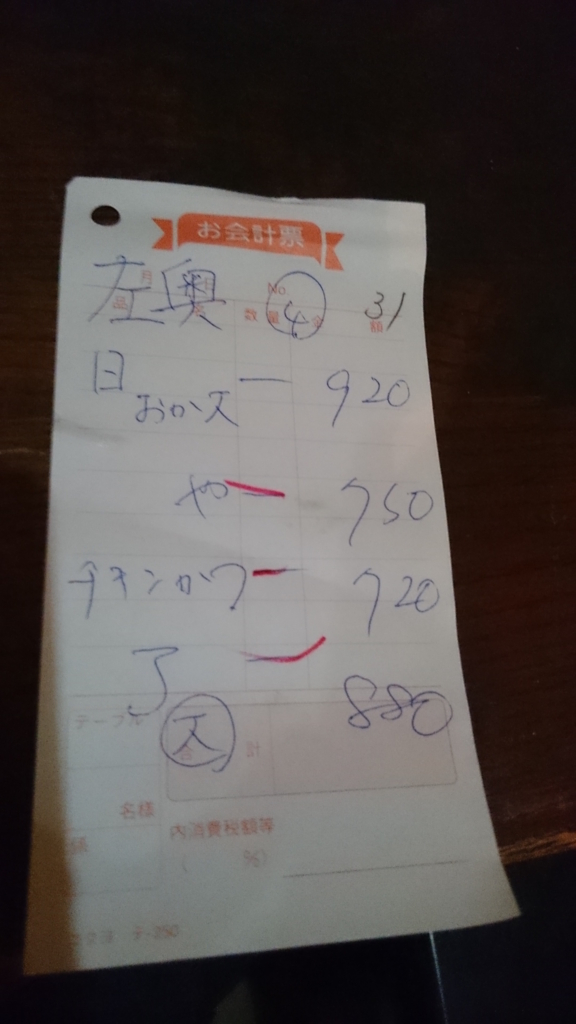 お会計票
月 日 No.
左奥 ④ 31
品 名 数 量 金 額
日 おかス 一 920
や 一 750
チキンカツ 一 720
880
テーブル
合 計
名様
内消費税額等
( %)
テ-250